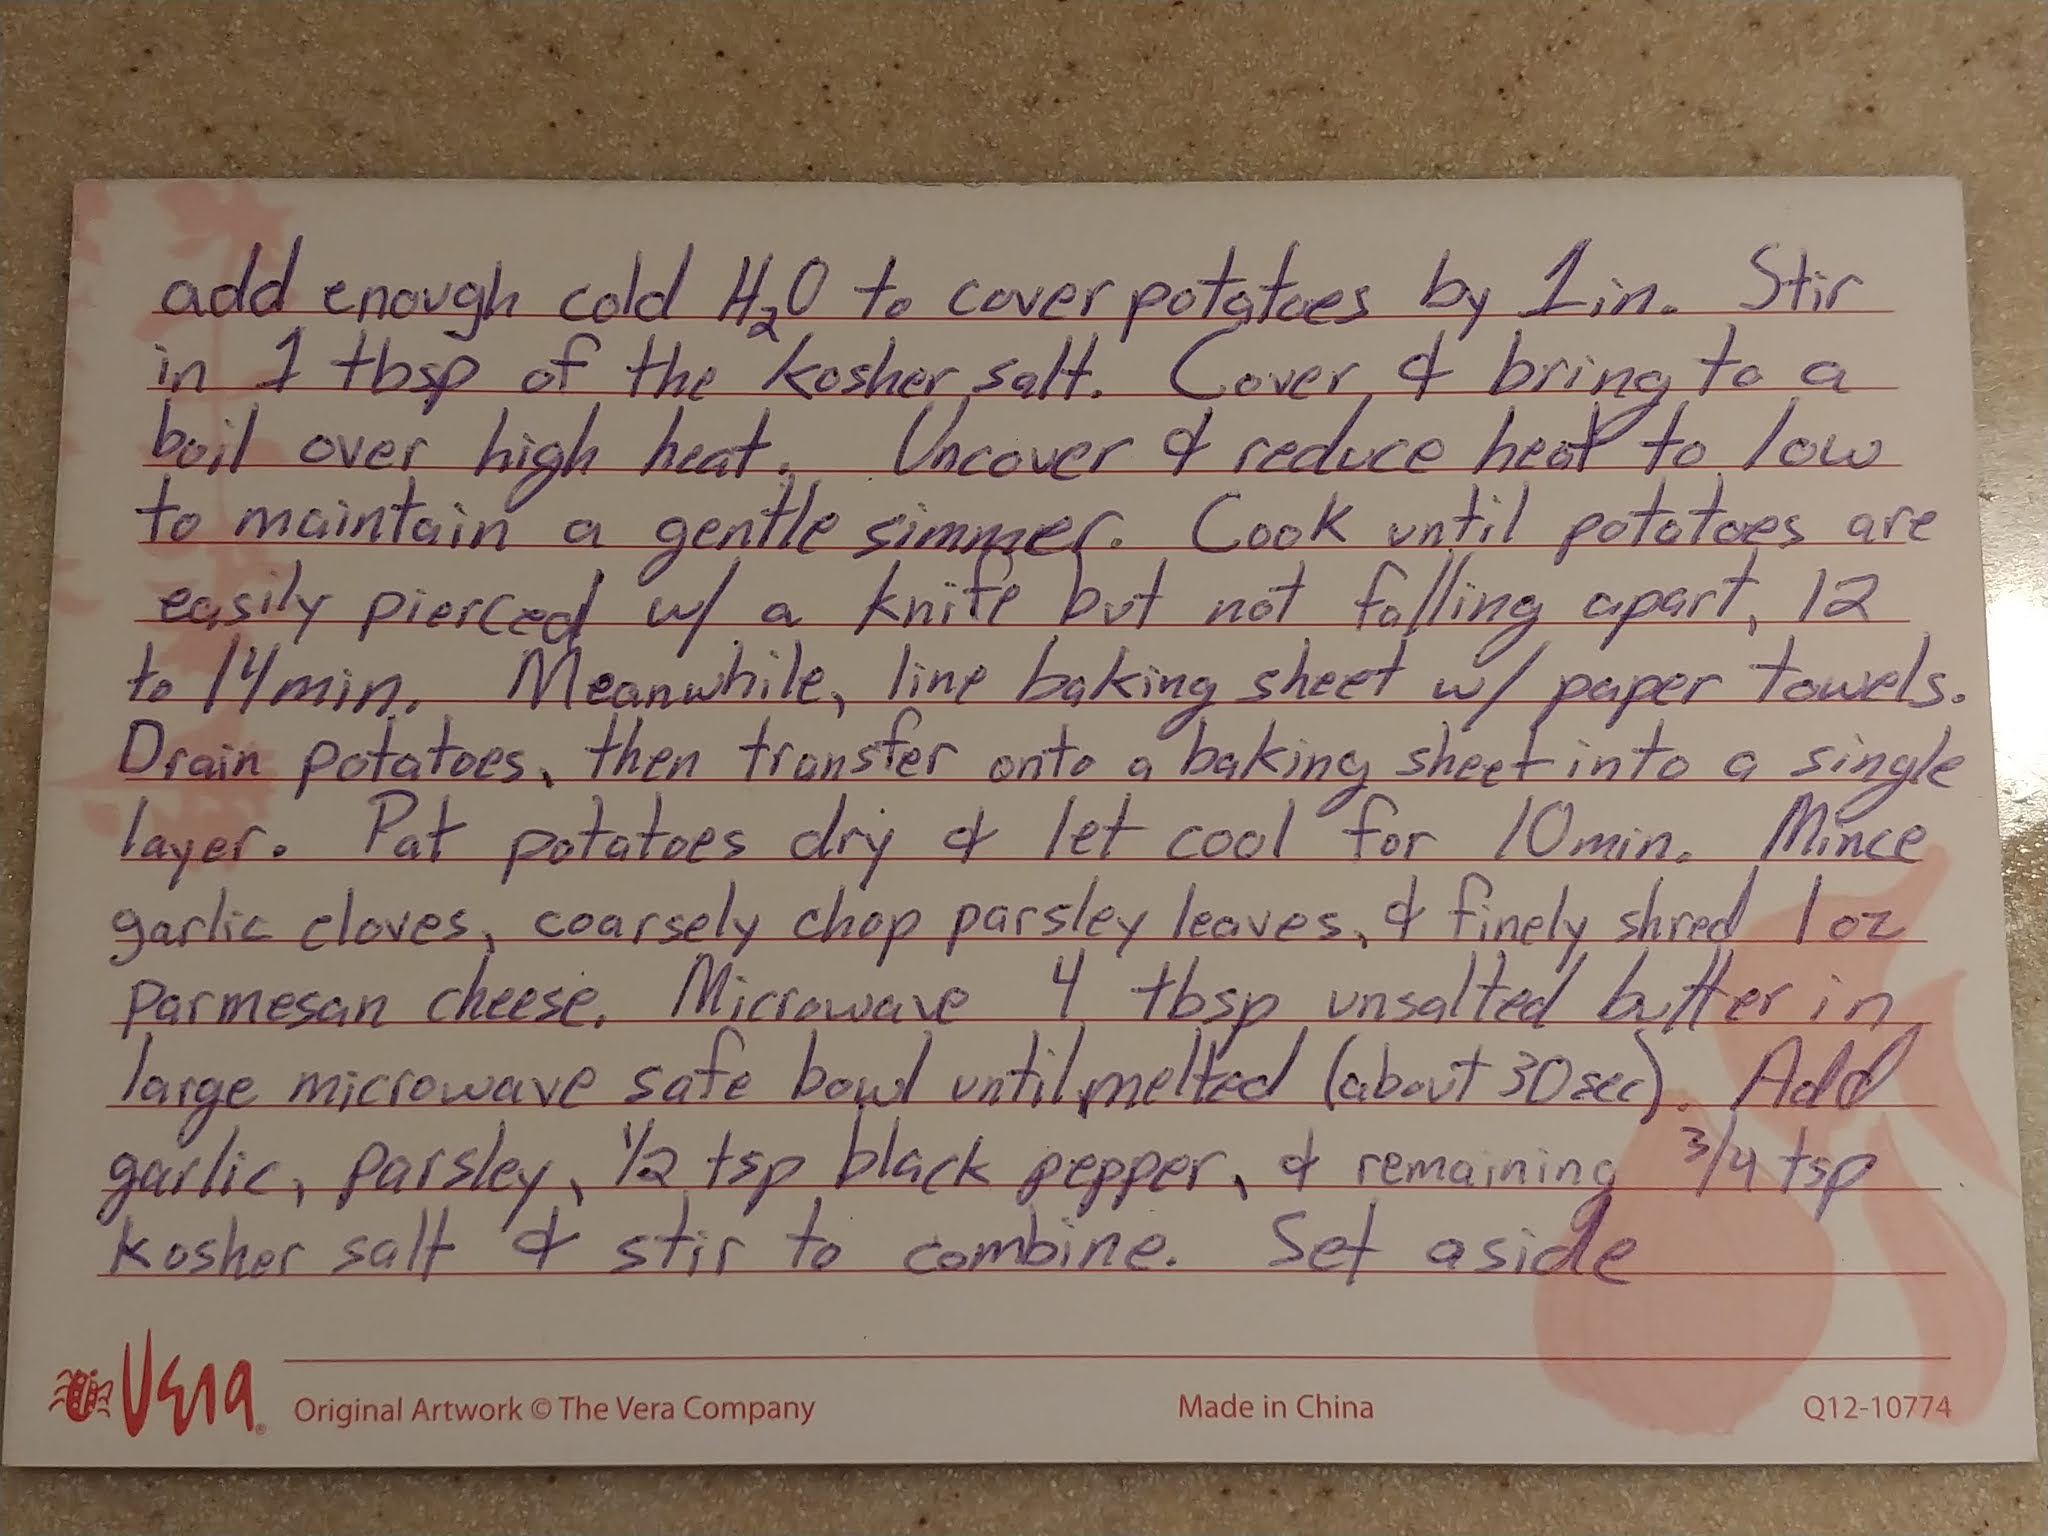 add enough cold H₂O to cover potatoes by 1 in. Stir
in 1 tbsp of the kosher salt. Cover & bring to a
boil over high heat. Uncover & reduce heat to low
to maintain a gentle simmer. Cook until potatoes are
easily pierced w/ a knife but not falling apart, 12
to 14 min. Meanwhile, line baking sheet w/ paper towels.
Drain potatoes, then transfer onto a baking sheet into a single
layer. Pat potatoes dry & let cool for 10 min. Mince
garlic cloves, coarsely chop parsley leaves, & finely shred 1 oz
parmesan cheese. Microwave 4 tbsp unsalted butter in
large microwave safe bowl until melted (about 30 sec). Add
garlic, parsley, 1/2 tsp black pepper, & remaining 3/4 tsp
kosher salt & stir to combine. Set aside
Vera® Original Artwork © The Vera Company Made in China Q12-10774